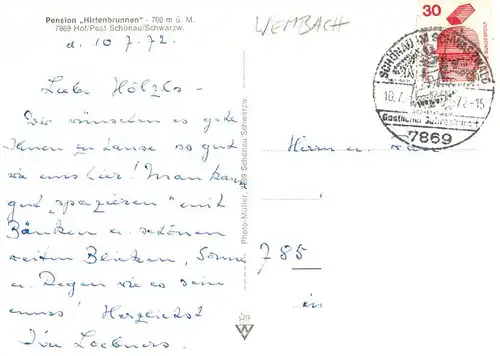 Pension „Hirtenbrunnen" - 700 m ü. M.
7869 Hof/Post Schönau/Schwarzw.
d. 10 7. 72.
Liebe Hölzls -
Wir wünschten es geht
Ihnen zu Hause so gut
wie uns hier! Man kann
gut „spazieren" mit
Bänken u. schönen
weiten Blicken, Sonne
u. Regen wie es sein
muss! Herzlichst
Ihre
Photo-Müller, 7869 Schönau Schwarzw.
WEMBACH
30
SCHÖNAU IM SCHWARZWALD
10.7.72-15
7869
Herrn u.
785
in